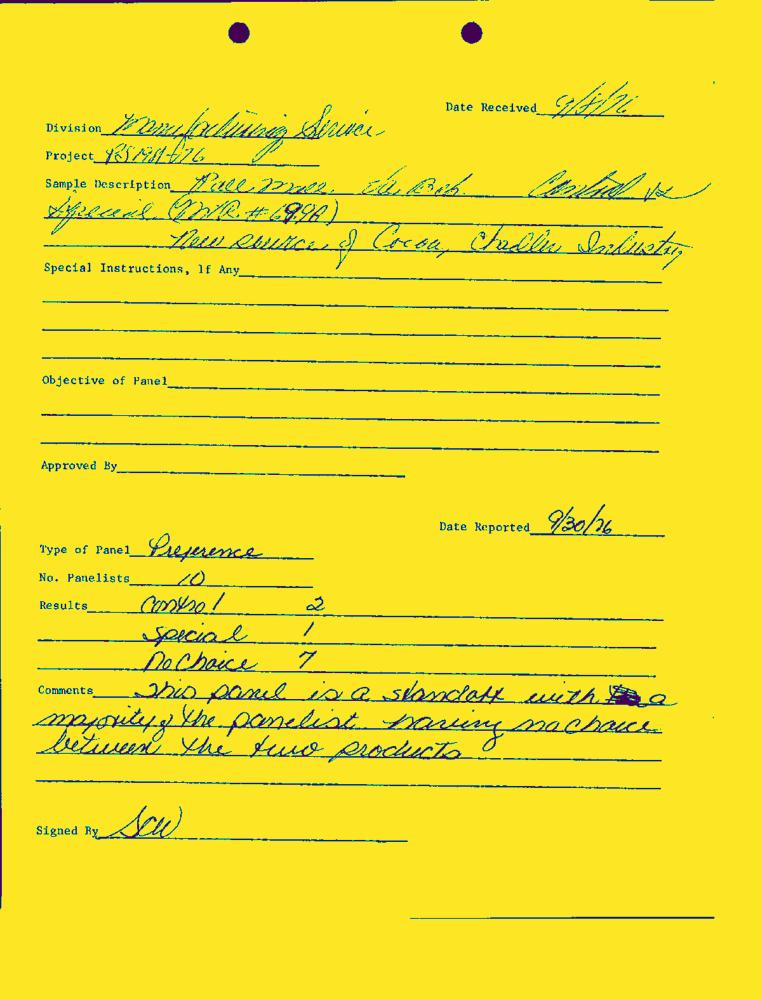 Date Received 9/8/76
Division Manufacturing Service
Project
Sample Description Pall Mall Control vs
Special (
New source of Cocoa, Industry
Special Instructions, If Any
Objective of Panel
Approved By
Date Reported 9/30/76
Type of Panel Preference
No. Panelists 10
Results Control 2
Special 1
No Choice 7
Comments This panel is a standoff with a
majority of the panelist having no choice
between the two products
Signed By SCW